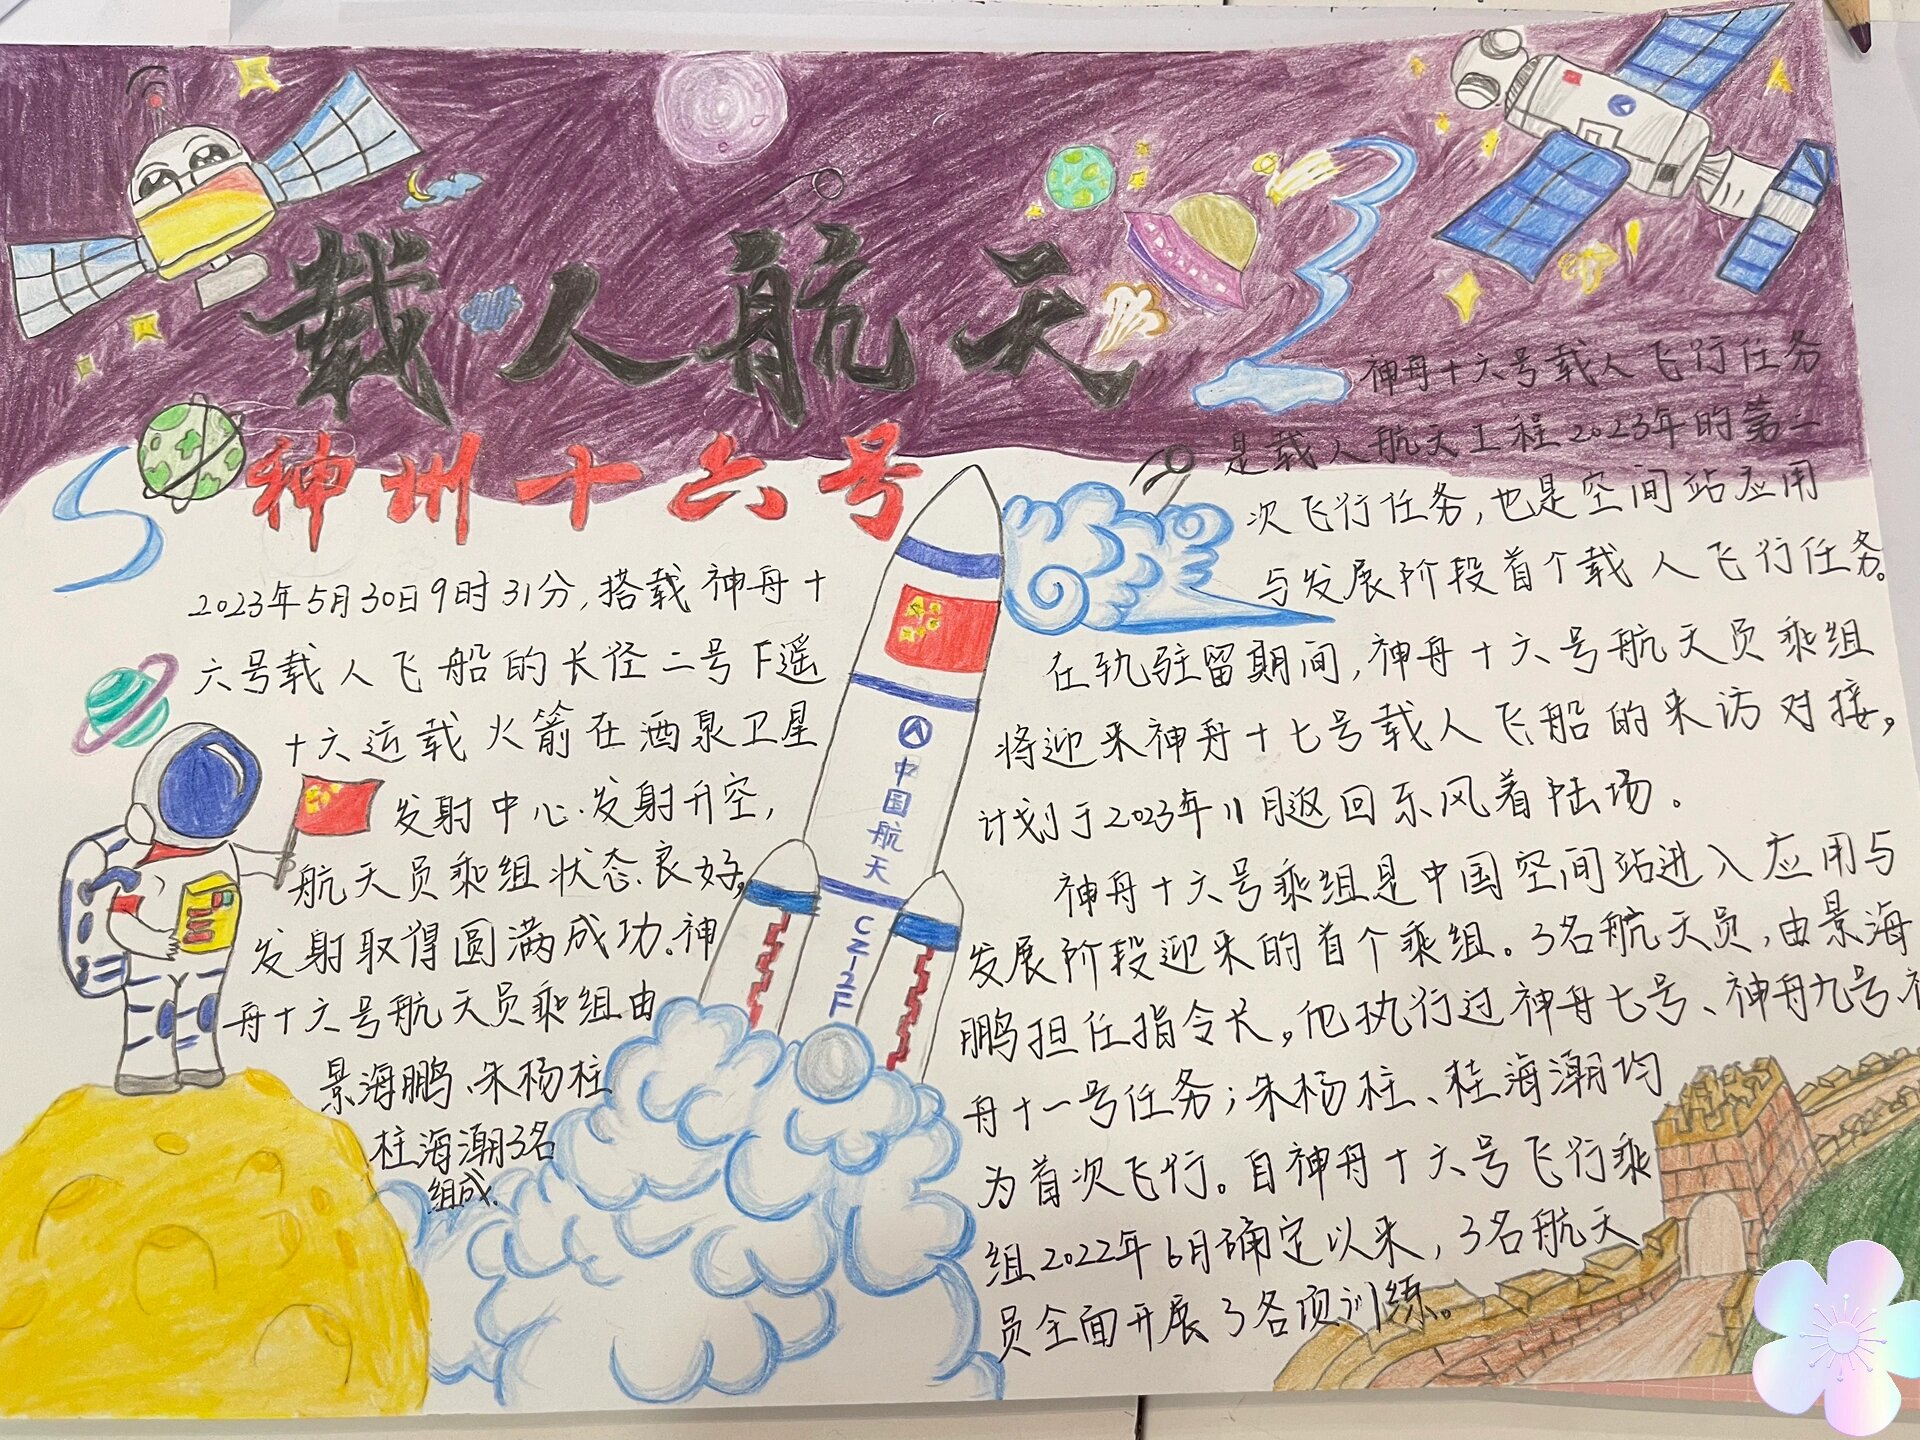 载人航天
神州十六号
2023年5月30日9时31分,搭载神舟十
六号载人飞船的长径二号F遥
十六运载火箭在酒泉卫星
发射中心.发射升空,
航天员乘组状态良好,
发射取得圆满成功。神
舟十六号航天员乘组由
景海鹏、朱杨柱
柱海潮3名
组成.
中国航天
CZ-2F
神舟十六号载人飞行任务
是载人航天工程2023年的第二
次飞行任务,也是空间站应用
与发展阶段首个载人飞行任务。
在轨驻留期间,神舟十六号航天员乘组
将迎来神舟十七号载人飞船的来访对接,
计划于2023年11月返回东风着陆场。
神舟十六号乘组是中国空间站进入应用与
发展阶段迎来的首个乘组。3名航天员,由景海
鹏担任指令长。他执行过神舟七号、神舟九号、神
舟十一号任务;朱杨柱、桂海潮均
为首次飞行。自神舟十六号飞行乘
组2022年6月确定以来,3名航天
员全面开展了各项训练。